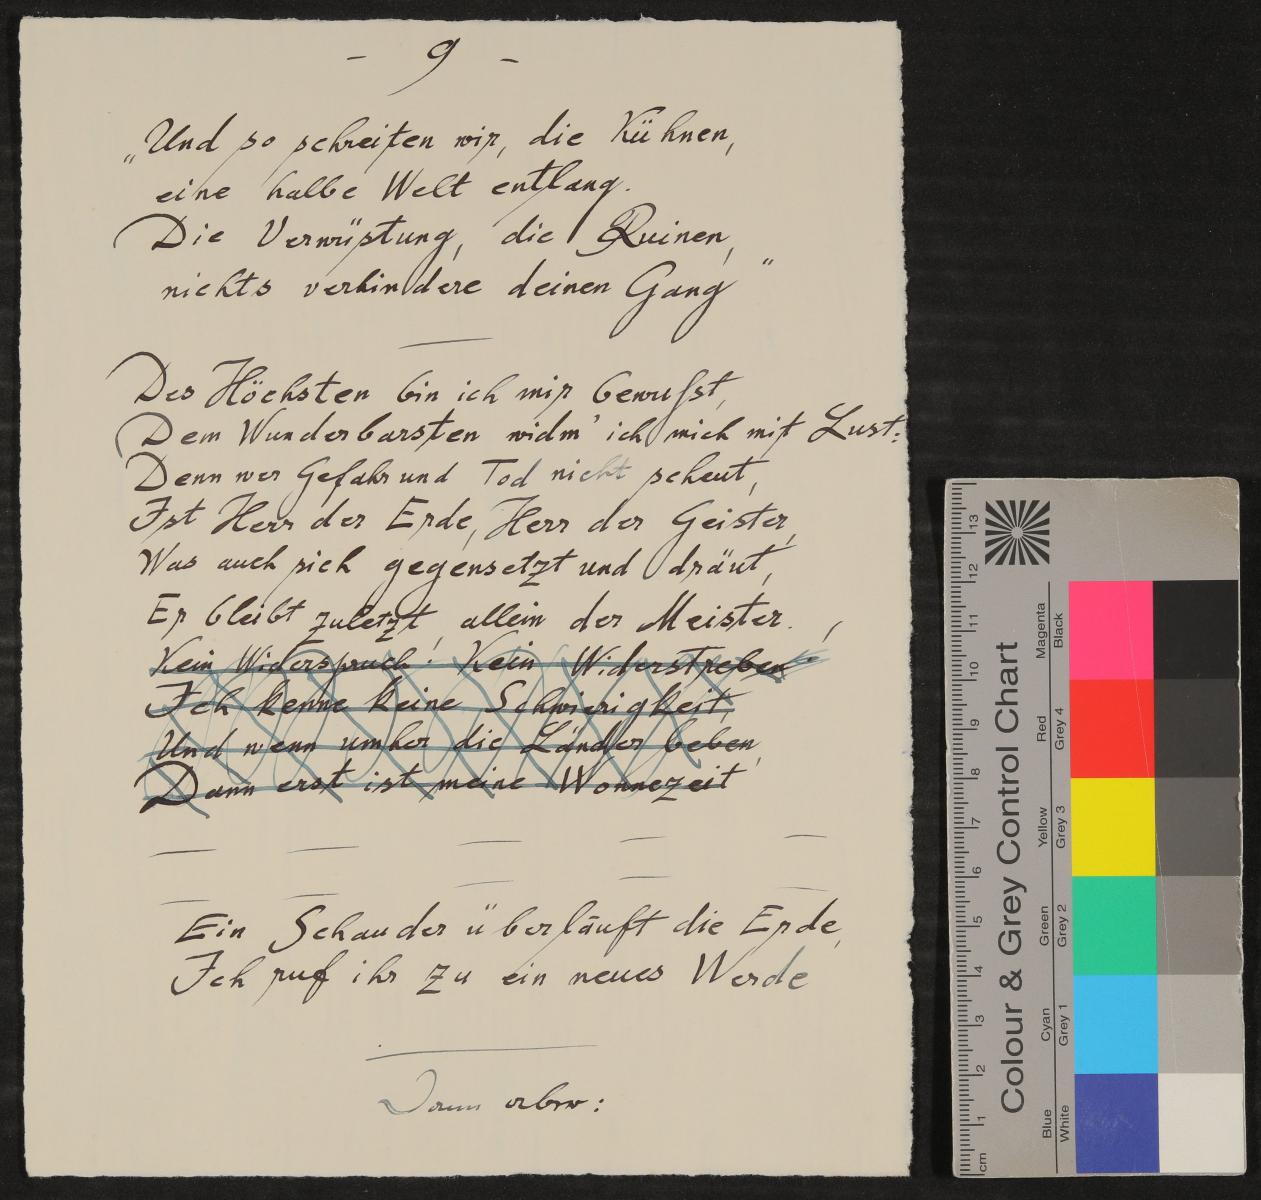 - 9 -
„Und so schreiten wir, die Kühnen,
eine halbe Welt entlang.
Die Verwüstung, die Ruinen,
nichts verhindere deinen Gang"
Des Höchsten bin ich mir bewusst,
Dem Wunderbarsten widm' ich mich mit Lust:
Denn wer Gefahr und Tod nicht scheut,
Ist Herr der Erde, Herr der Geister,
Was auch sich gegensetzt und dräut,
Er bleibt zuletzt, allein der Meister.
Kein Widerspruch! Kein Widerstreben.
Ich kenne keine Schwierigkeit,
Und wenn umher die Länder beben,
Dann erst ist meine Wonnezeit
Ein Schauder überläuft die Erde,
Ich ruf ihr zu ein neues Werde
Dann aber:
Colour & Grey Control Chart
Blue Cyan Green Yellow Red Magenta
White Grey 1 Grey 2 Grey 3 Grey 4 Black
cm 1 2 3 4 5 6 7 8 9 10 11 12 13